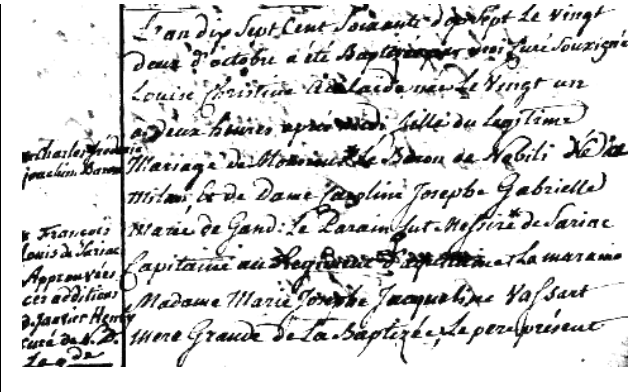 L'an dix Sept Cent Soixante dix Sept Le Vingt
deux d'octobre a été Baptizée par moi Curé Soussigné
Louise Christine Adelaide née Le Vingt un
a deux heures après midi fille du legitime
Mariage de Monsieur * Le Baron de Nobili Né de
Milan, et de Dame Caroline Josephe Gabrielle
Marie de Gand: Le Parain fut Messire * de Sariac
Capitaine au Regiment d'aquitaine & La maraine
Madame Marie Josephe Jacqueline Vassart
Mere Grande de La Baptizée, Le pere présent
* Charles
joachim Baron
* François
Louis de Sariac
Approuvées
ces additions
Janvier Henry
Curé de N. D.